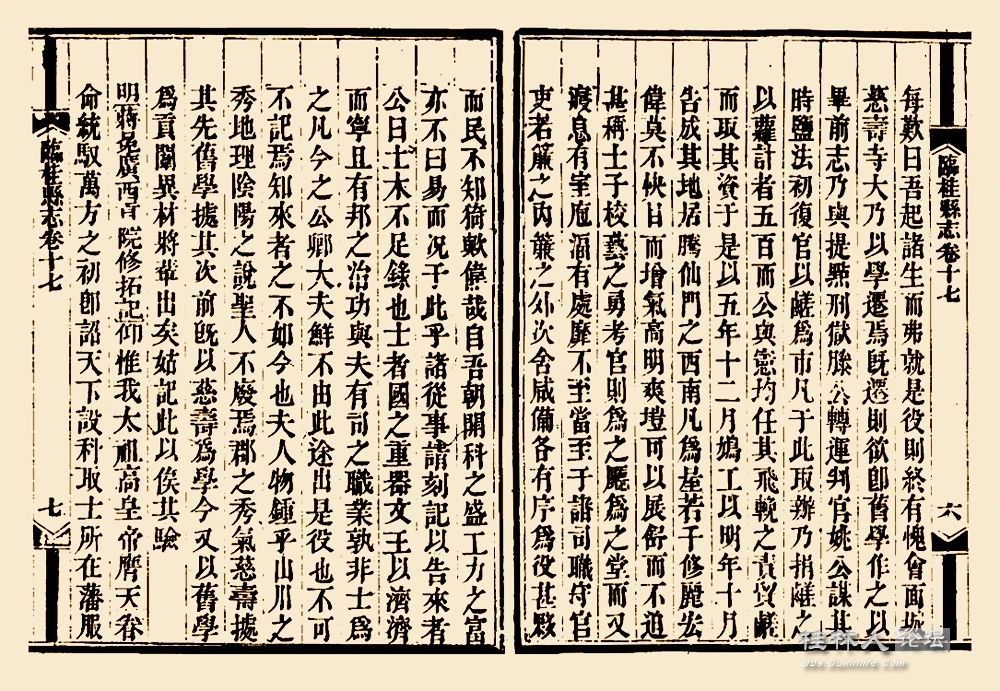 臨桂縣志卷十七
六
每歎曰吾起諸生而弗就是役則終有愧會面城
慈壽寺大乃以學遷焉旣遷則欲卽舊學作之以
畢前志乃與提點刑獄滕公轉運判官姚公謀其
時鹽法初復官以鹺爲市凡于此取辦乃捐鹺之
以蘿計者五百而公與憲均任其飛輓之責貿鹺
而取其資于是以五年十二月鳩工以明年十月
告成其地居騰仙門之西南凡爲屋若干修麗宏
偉莫不快目而增氣高明爽塏可以展舒而不迫
其稱士子校藝之勇考官則爲之廳爲之堂而又
寢息有室庖湢有處靡不至當至于諸司職守官
吏若簾之內簾之外次舍咸備各有序爲役甚夥
而民不知猗歟偉哉自吾朝開科之盛工力之富
亦不曰易而况于此乎諸從事請刻記以告來者
公曰土木不足錄也士者國之重器文王以濟濟
而寧且有邦之治功與夫有司之職業孰非士爲
之凡今之公卿大夫鮮不由此途出是役也不可
不記焉知來者之不如今也夫人物鍾乎山川之
秀地理陰陽之說聖人不廢焉郡之秀氣慈壽據
其先舊學據其次前旣以慈壽爲學今又以舊學
爲貢闈異材將輩出矣姑記此以俟其驗
明蔣冕廣西貢院修拓記仰惟我太祖高皇帝膺天眷
命統馭萬方之初卽詔天下設科取士所在藩服
臨桂縣志卷十七
七
桂林人论坛
bbs.Guilinlife.Com